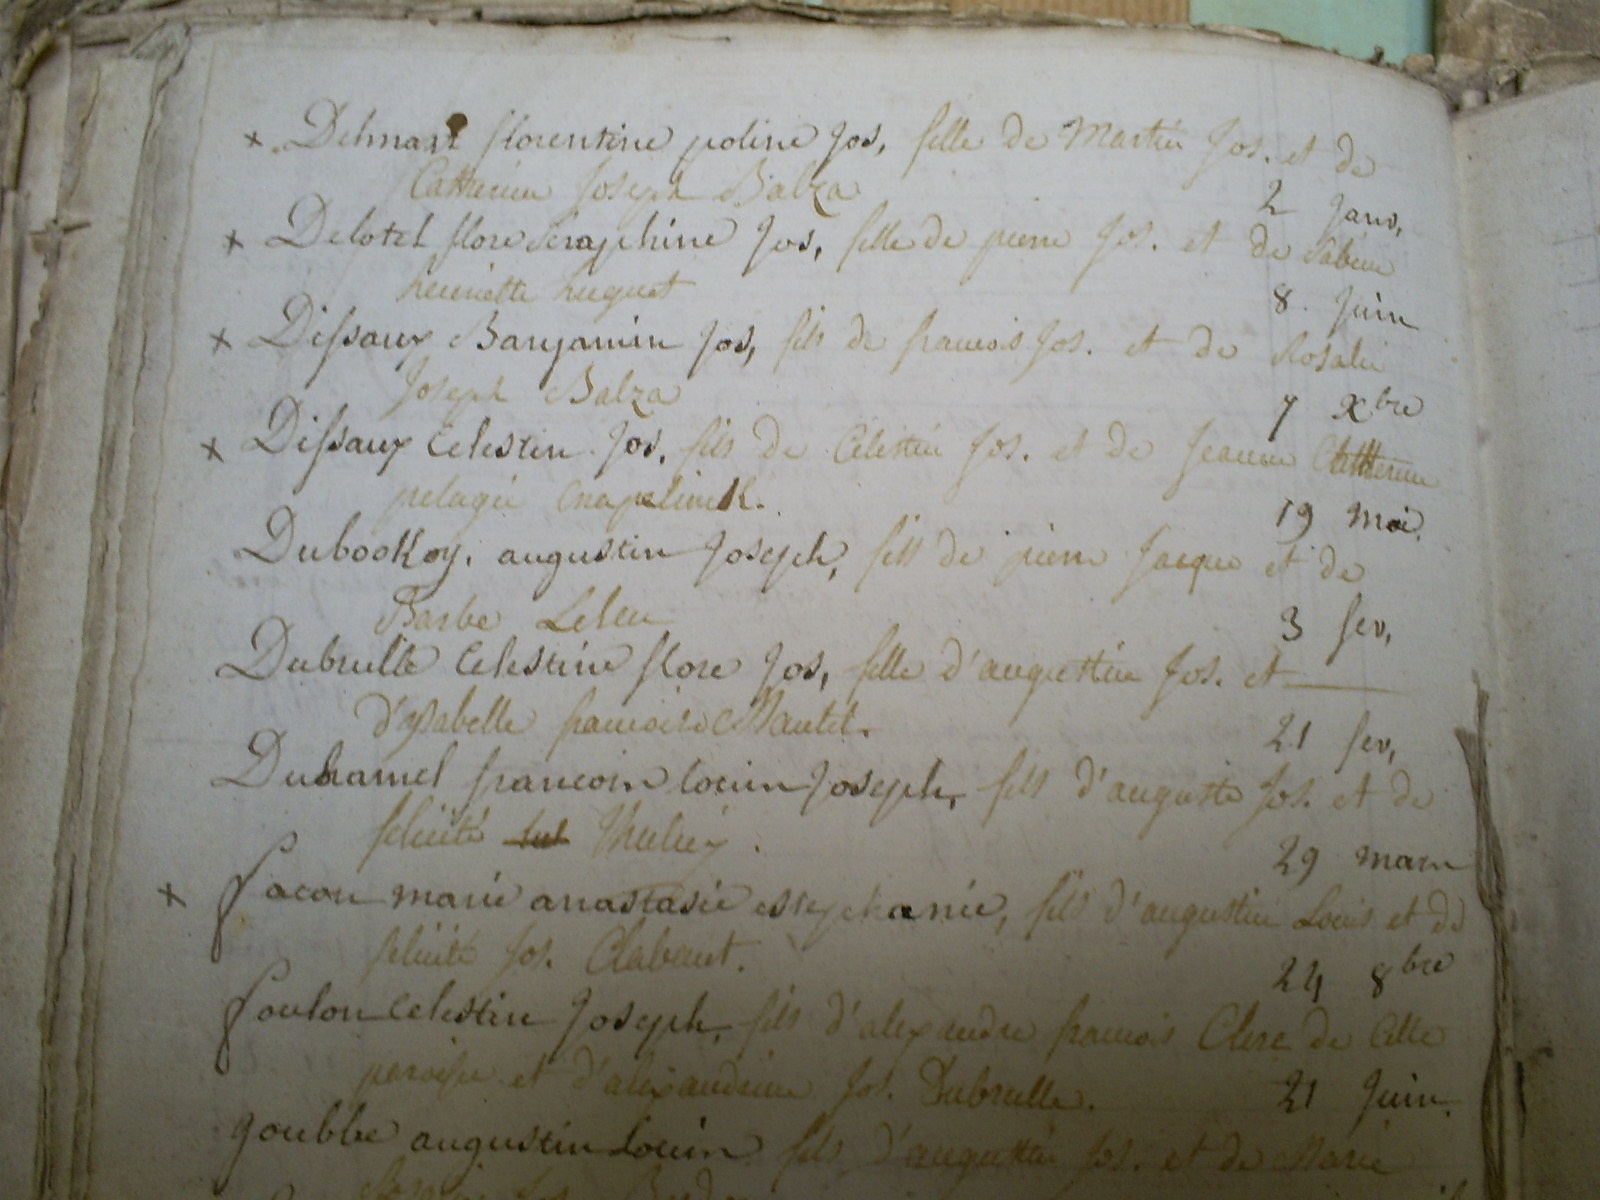 x Delmart florentine poline Jos, fille de Martin Jos. et de
Catherine Joseph Balza 2 Janv,
x Delotel flore Seraphine Jos, fille de pierre Jos. et de Sabine
henriette huguet 8. Juin
x Dissaux Banjamin Jos, fils de francois Jos. et de Rosalie
Joseph Balza 7 Xbre
x Dissaux Celestin Jos, fils de Célestin Jos. et de Jeanne Catherine
pelagie Chapelinck. 19 Mai.
Dubookoy, augustin Joseph, fils de pierre Jacque et de
Barbe Leleu 3 fev,
Dubrulle Celestine flore Jos, fille d'augustin Jos. et
d'ysabelle francoise Nautel. 21 fev,
Duhamel francois Louis Joseph, fils d'auguste Jos. et de
félicité Thuliéz. 29 mars
x facon marie anastasie estephanie, fils d'augustin Louis et de
félicité Jos. Clabaut. 24 8bre
foulon Celestin Joseph, fils d'alexandre francois Clerc de Cette
paroisse et d'alexandrine Jos. Dubrulle. 21 Juin.
goubbe augustin Louis fils d'augustin Jos. et de Marie